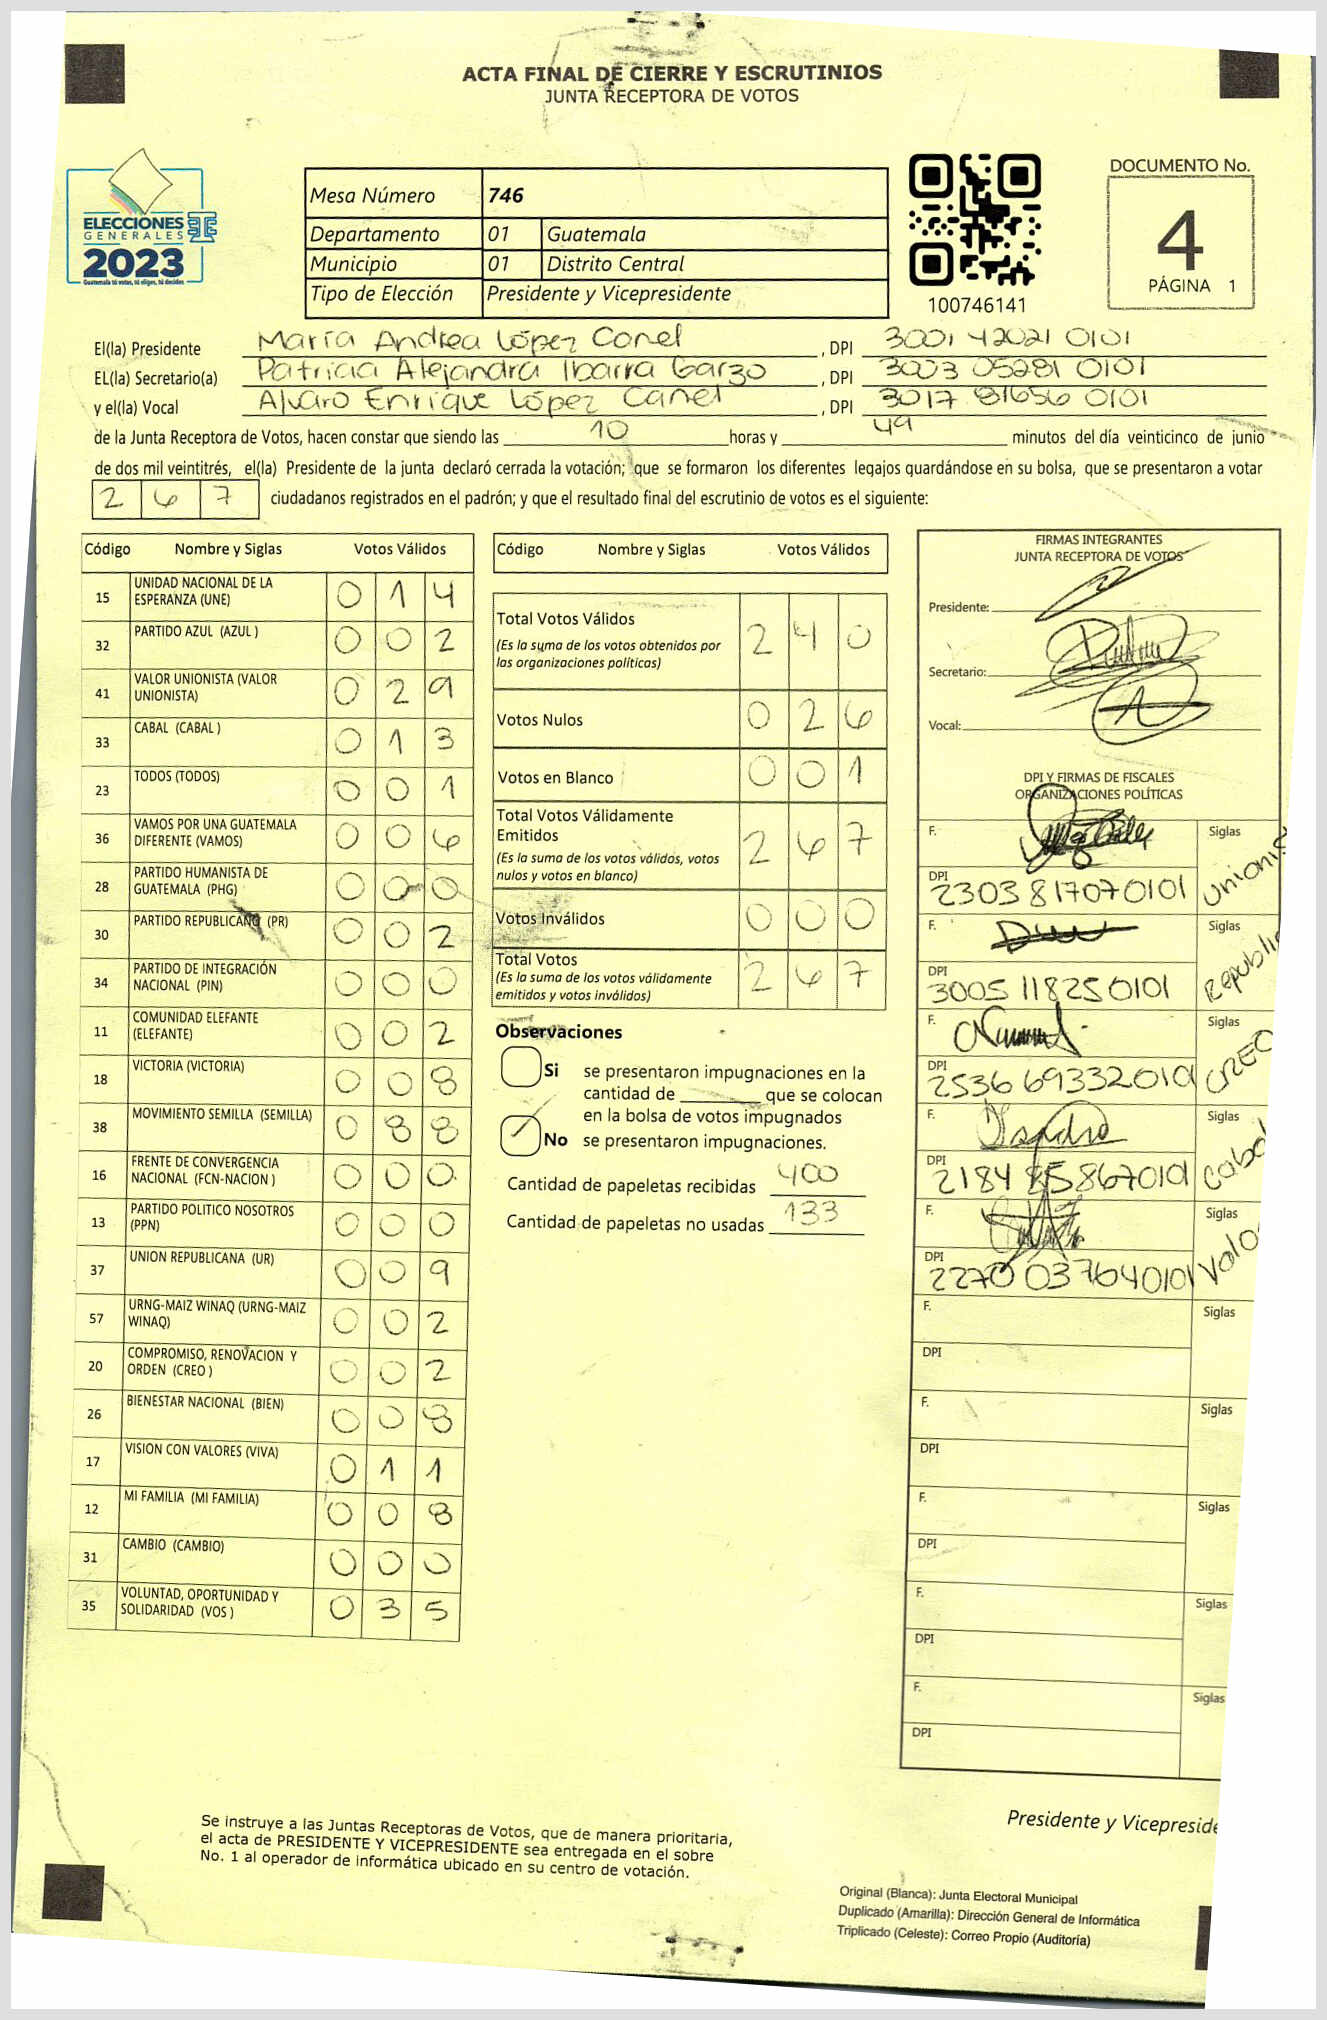 ACTA FINAL DE CIERRE Y ESCRUTINIOS
JUNTA RECEPTORA DE VOTOS
ELECCIONES
GENERALES
2023
Guatemala tú votas, tú eliges, tú decides
Mesa Número 746
Departamento 01 Guatemala
Municipio 01 Distrito Central
Tipo de Elección Presidente y Vicepresidente
100746141
DOCUMENTO No.
4
PÁGINA 1
El(la) Presidente María Andrea López Canel , DPI 3001 42021 0101
EL(la) Secretario(a) Patricia Alejandra Ibarra Garzo , DPI 3003 05281 0101
y el(la) Vocal Alvaro Enrique López Canel , DPI 3017 81656 0101
de la Junta Receptora de Votos, hacen constar que siendo las 10 horas y 49 minutos del día veinticinco de junio
de dos mil veintitrés, el(la) Presidente de la junta declaró cerrada la votación; que se formaron los diferentes legajos guardándose en su bolsa, que se presentaron a votar
2 6 7 ciudadanos registrados en el padrón; y que el resultado final del escrutinio de votos es el siguiente:
Código Nombre y Siglas Votos Válidos
15 UNIDAD NACIONAL DE LA ESPERANZA (UNE) 0 1 4
32 PARTIDO AZUL (AZUL ) 0 0 2
41 VALOR UNIONISTA (VALOR UNIONISTA) 0 2 9
33 CABAL (CABAL ) 0 1 3
23 TODOS (TODOS) 0 0 1
36 VAMOS POR UNA GUATEMALA DIFERENTE (VAMOS) 0 0 6
28 PARTIDO HUMANISTA DE GUATEMALA (PHG) 0 0 0
30 PARTIDO REPUBLICANO (PR) 0 0 2
34 PARTIDO DE INTEGRACIÓN NACIONAL (PIN) 0 0 0
11 COMUNIDAD ELEFANTE (ELEFANTE) 0 0 2
18 VICTORIA (VICTORIA) 0 0 8
38 MOVIMIENTO SEMILLA (SEMILLA) 0 8 8
16 FRENTE DE CONVERGENCIA NACIONAL (FCN-NACION ) 0 0 0
13 PARTIDO POLITICO NOSOTROS (PPN) 0 0 0
37 UNION REPUBLICANA (UR) 0 0 9
57 URNG-MAIZ WINAQ (URNG-MAIZ WINAQ) 0 0 2
20 COMPROMISO, RENOVACION Y ORDEN (CREO ) 0 0 2
26 BIENESTAR NACIONAL (BIEN) 0 0 8
17 VISION CON VALORES (VIVA) 0 1 1
12 MI FAMILIA (MI FAMILIA) 0 0 8
31 CAMBIO (CAMBIO) 0 0 0
35 VOLUNTAD, OPORTUNIDAD Y SOLIDARIDAD (VOS ) 0 3 5
Código Nombre y Siglas Votos Válidos
Total Votos Válidos 2 4 0
(Es la suma de los votos obtenidos por
las organizaciones políticas)
Votos Nulos 0 2 6
Votos en Blanco 0 0 1
Total Votos Válidamente
Emitidos 2 6 7
(Es la suma de los votos válidos, votos
nulos y votos en blanco)
Votos Inválidos 0 0 0
Total Votos 2 6 7
(Es la suma de los votos válidamente
emitidos y votos inválidos)
Observaciones
Si se presentaron impugnaciones en la
cantidad de ________ que se colocan
en la bolsa de votos impugnados
No se presentaron impugnaciones.
Cantidad de papeletas recibidas 400
Cantidad de papeletas no usadas 133
FIRMAS INTEGRANTES
JUNTA RECEPTORA DE VOTOS
Presidente:
Secretario:
Vocal:
DPI Y FIRMAS DE FISCALES
ORGANIZACIONES POLÍTICAS
F. Siglas
DPI 2303 81707 0101
F. Siglas
DPI 3005 11825 0101
F. Siglas CREO
DPI 2536 69332 0101
F. Siglas
DPI 2184 85867 0101
F. Siglas
DPI 2270 03764 0101
F. Siglas
DPI
F. Siglas
DPI
F. Siglas
DPI
F. Siglas
DPI
F. Siglas
DPI
Se instruye a las Juntas Receptoras de Votos, que de manera prioritaria,
el acta de PRESIDENTE Y VICEPRESIDENTE sea entregada en el sobre
No. 1 al operador de informática ubicado en su centro de votación.
Presidente y Vicepreside
Original (Blanca): Junta Electoral Municipal
Duplicado (Amarilla): Dirección General de Informática
Triplicado (Celeste): Correo Propio (Auditoría)